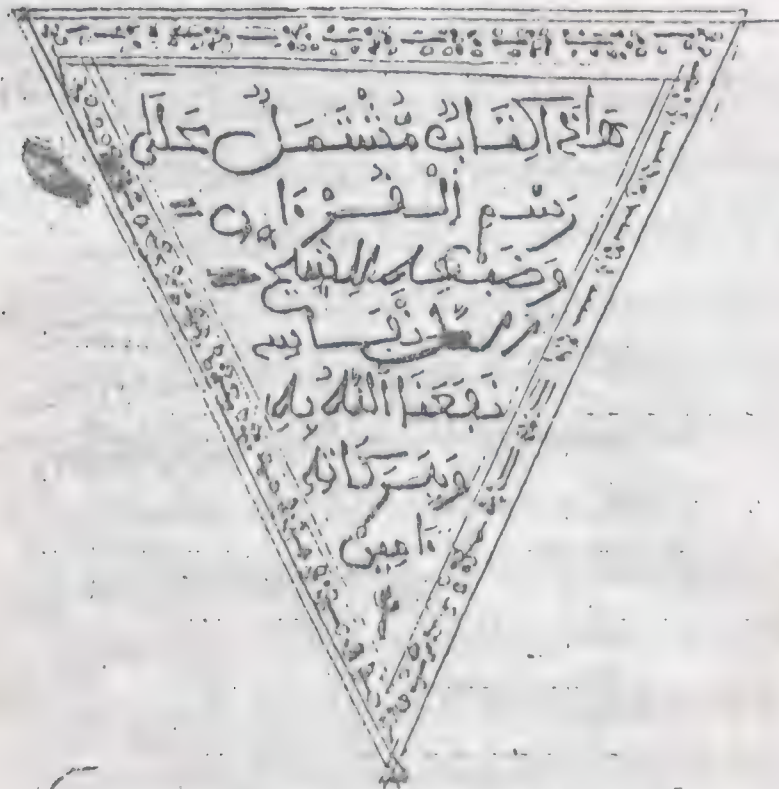 هَٰذَا كِتَابٌ مُّشْتَمِلٌ عَلَى
رَسْمِ الْقُرْءَانِ
وَضَبْطِهِ لِلشَّيْخِ

نَفَعَنَا اللَّهُ بِهِ
وَبِبَرَكَاتِهِ
ءَامِينْ